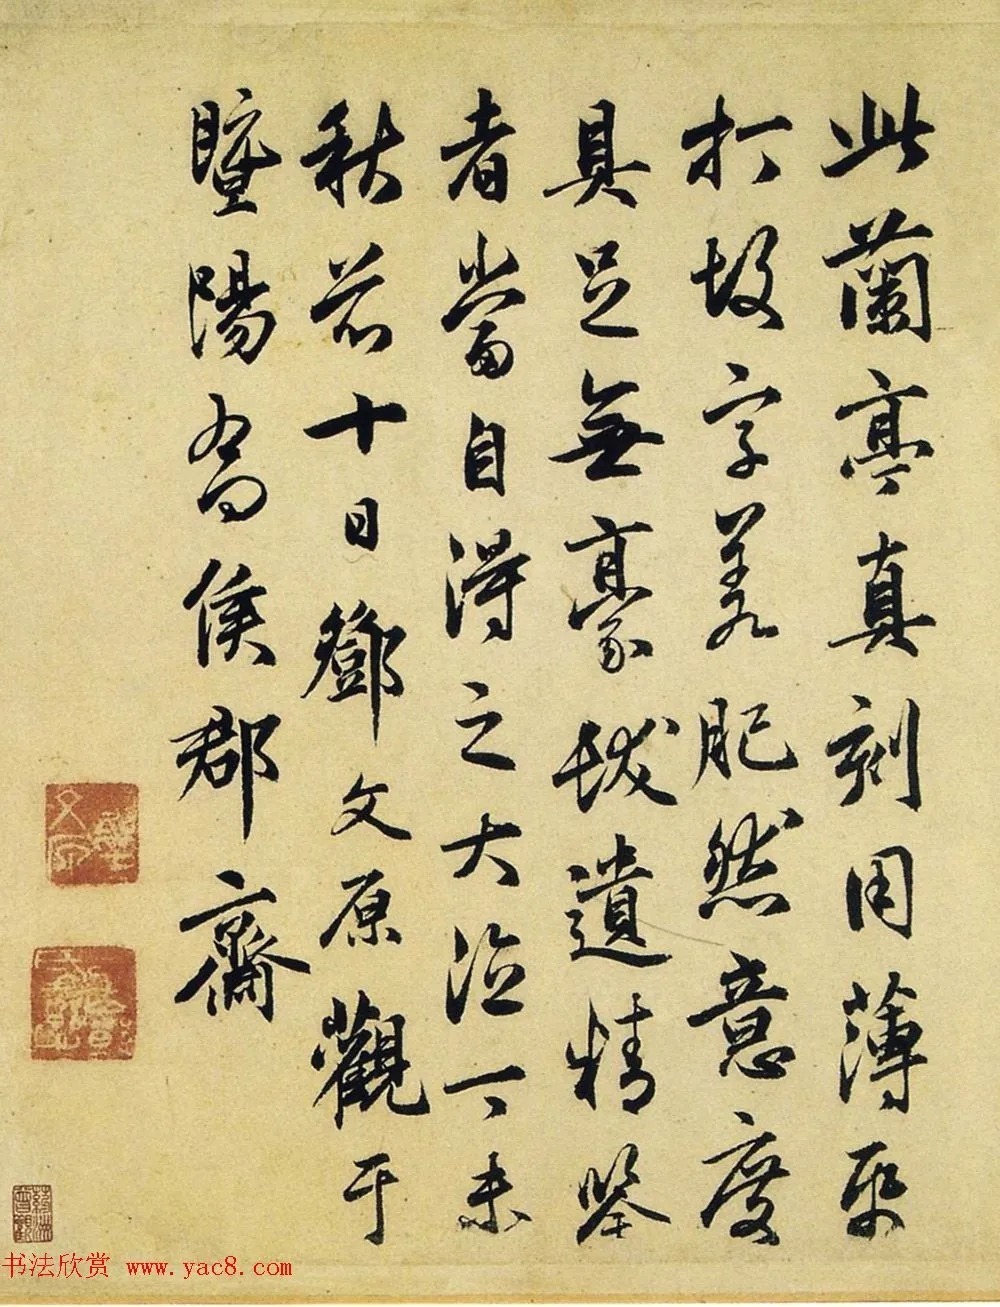 此蘭亭真刻用薄帋
打故字差肥然意度
具足無豪髮遺精鑒
者當自得之大德丁未
秋前十日鄧文原觀于
暨陽喬侯郡齋
书法欣赏 www.yac8.com